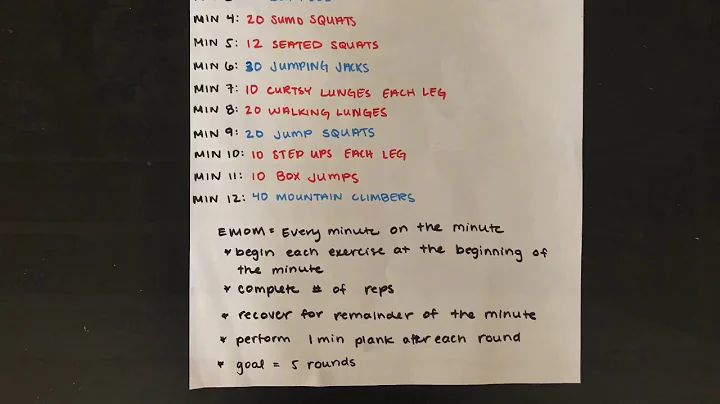 MIN 4: 20 SUMO SQUATS
MIN 5: 12 SEATED SQUATS
MIN 6: 30 JUMPING JACKS
MIN 7: 10 CURTSY LUNGES EACH LEG
MIN 8: 20 WALKING LUNGES
MIN 9: 20 JUMP SQUATS
MIN 10: 10 STEP UPS EACH LEG
MIN 11: 10 BOX JUMPS
MIN 12: 40 MOUNTAIN CLIMBERS
EMOM = Every minute on the minute
* begin each exercise at the beginning of
the minute
* complete # of reps
* recover for remainder of the minute
* perform 1 min plank after each round
* goal = 5 rounds